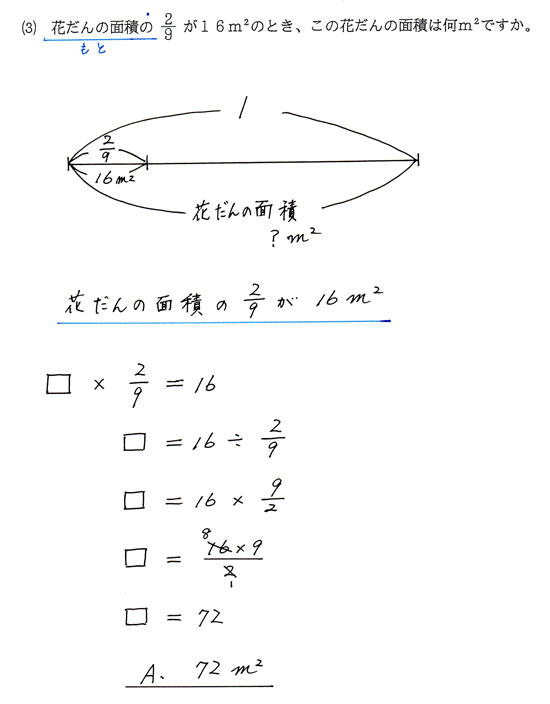 (3) 花だんの面積の 2/9 が16m²のとき、この花だんの面積は何m²ですか。
もと
1
2/9
16m²
花だんの面積
? m²
花だんの面積の 2/9 が 16m²
□ × 2/9 = 16
□ = 16 ÷ 2/9
□ = 16 × 9/2
8
□ = 16×9/2
1
□ = 72
A. 72m²